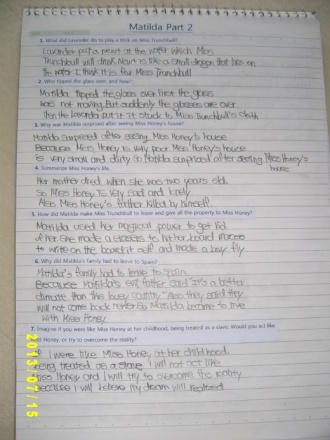 Matilda Part 2
1. What did Lavender do to play a trick on Miss Trunchbull?
Lavender put a newt at the water which Miss
Trunchbull will drink. Newt is like a small dragon that lives on
the water. I think it is for Miss Trunchbull
2. Who tipped the glass over, and how?
Matilda tipped the glass over first the glass
was not moving. But suddenly the glasses are over.
Then the Lavender put it it stuck to Miss Trunchbull's
3. Why was Matilda surprised after seeing Miss Honey's house?
Matilda surprised after seeing Miss Honey's house
Because Miss Honey is very poor Miss Honey's house
is very small and dirty so Matilda surprised after seeing Miss Honey's
house
4. Summarize Miss Honey's life.
Her mother died when she was two years old.
So Miss Honey is very sad and lonely
Also Miss Honey's father killed by himself.
5. How did Matilda make Miss Trunchbull to leave and give all the property to Miss Honey?
Matilda used her magical power to get rid
of her. she made a to her board
to write on the board it self and made a boy fly.
6. Why did Matilda's family had to leave to Spain?
Matilda's family had to leave to Spain
Because Matilda's evil father said "It's a better
climate than this lousy country." Also they said they
will not come back never. So Matilda became to live
with Miss Honey
7. Imagine if you were like Miss Honey at her childhood, being treated as a slave. Would you act like
Miss Honey, or try to overcome the reality?
If I were like Miss Honey at her childhood,
being treated as a slave I will not act like
Miss Honey and I will try to overcome the reality
because I will believe my dream will
2013/07/15